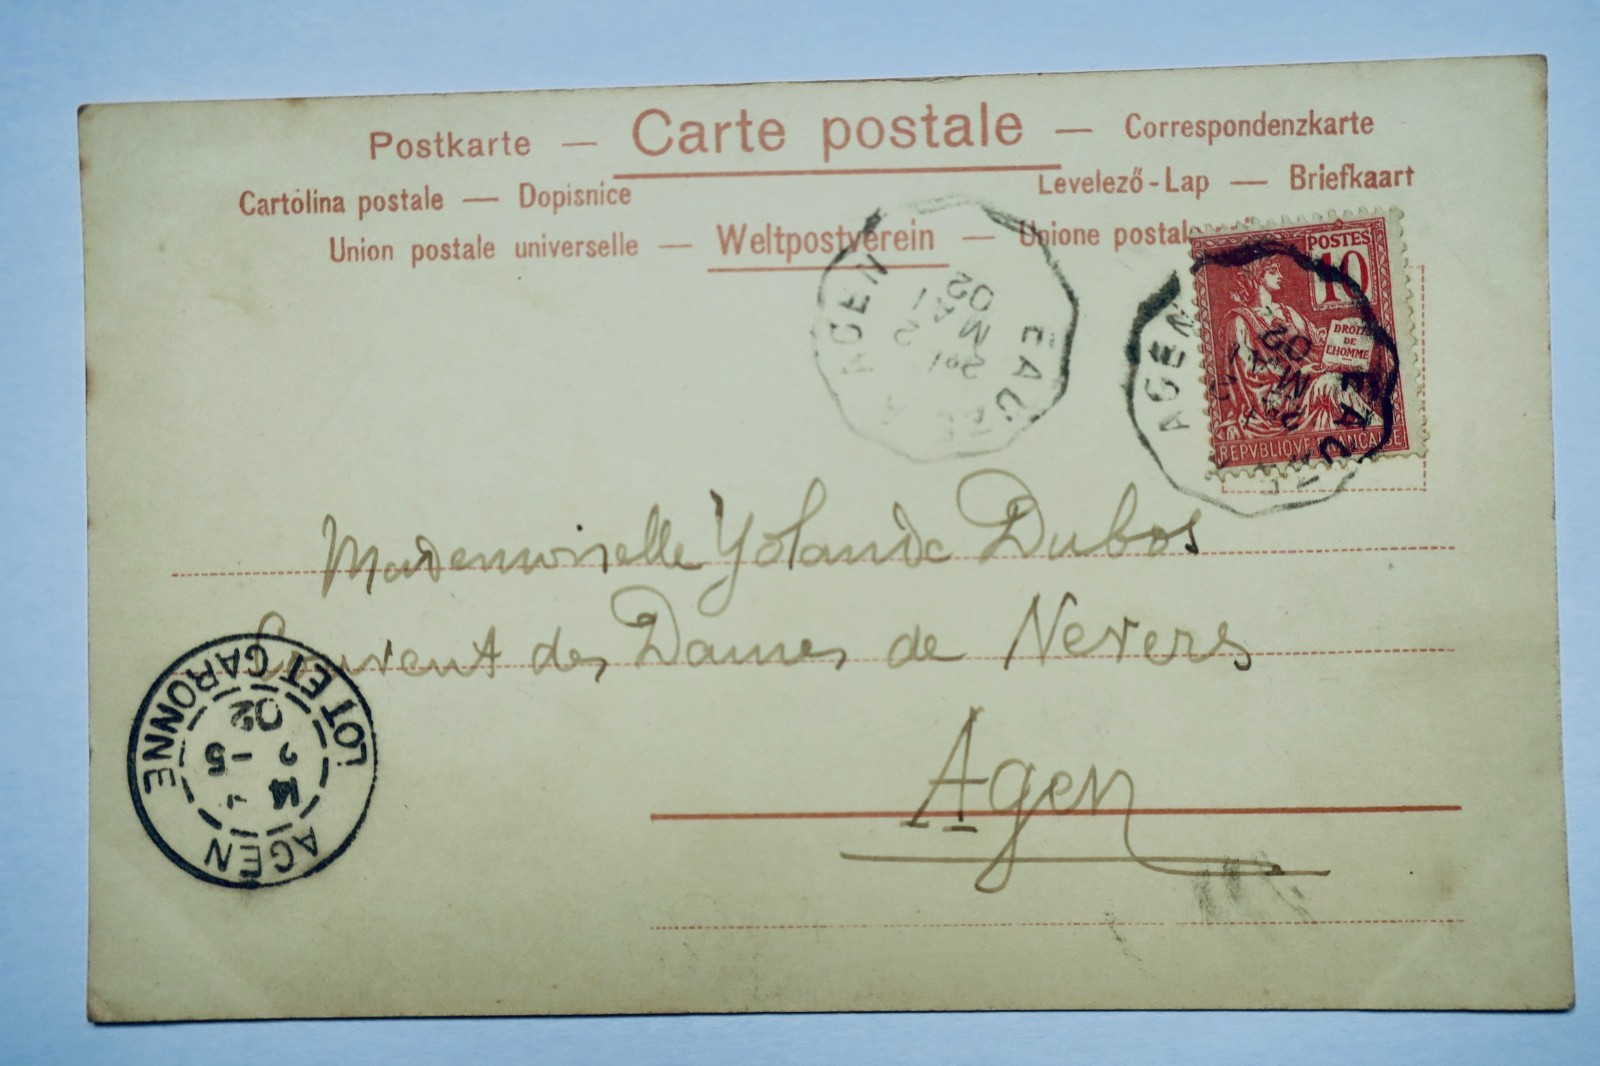 Postkarte — Carte postale — Correspondenzkarte
Cartolina postale — Dopisnice Levelező-Lap — Briefkaart
Union postale universelle — Weltpostverein — Unione postal
POSTES
10
DROITS
DE
L'HOMME
REPVBLIQVE FRANCAISE
AGEN
EAUZE A
2E
2
MAI
02
AGEN
EAU
MAI
02
Mademoiselle Yolande Dubos
Couvent des Dames de Nevers
Agen
AGEN
LOT ET GARONNE
2 -5
02